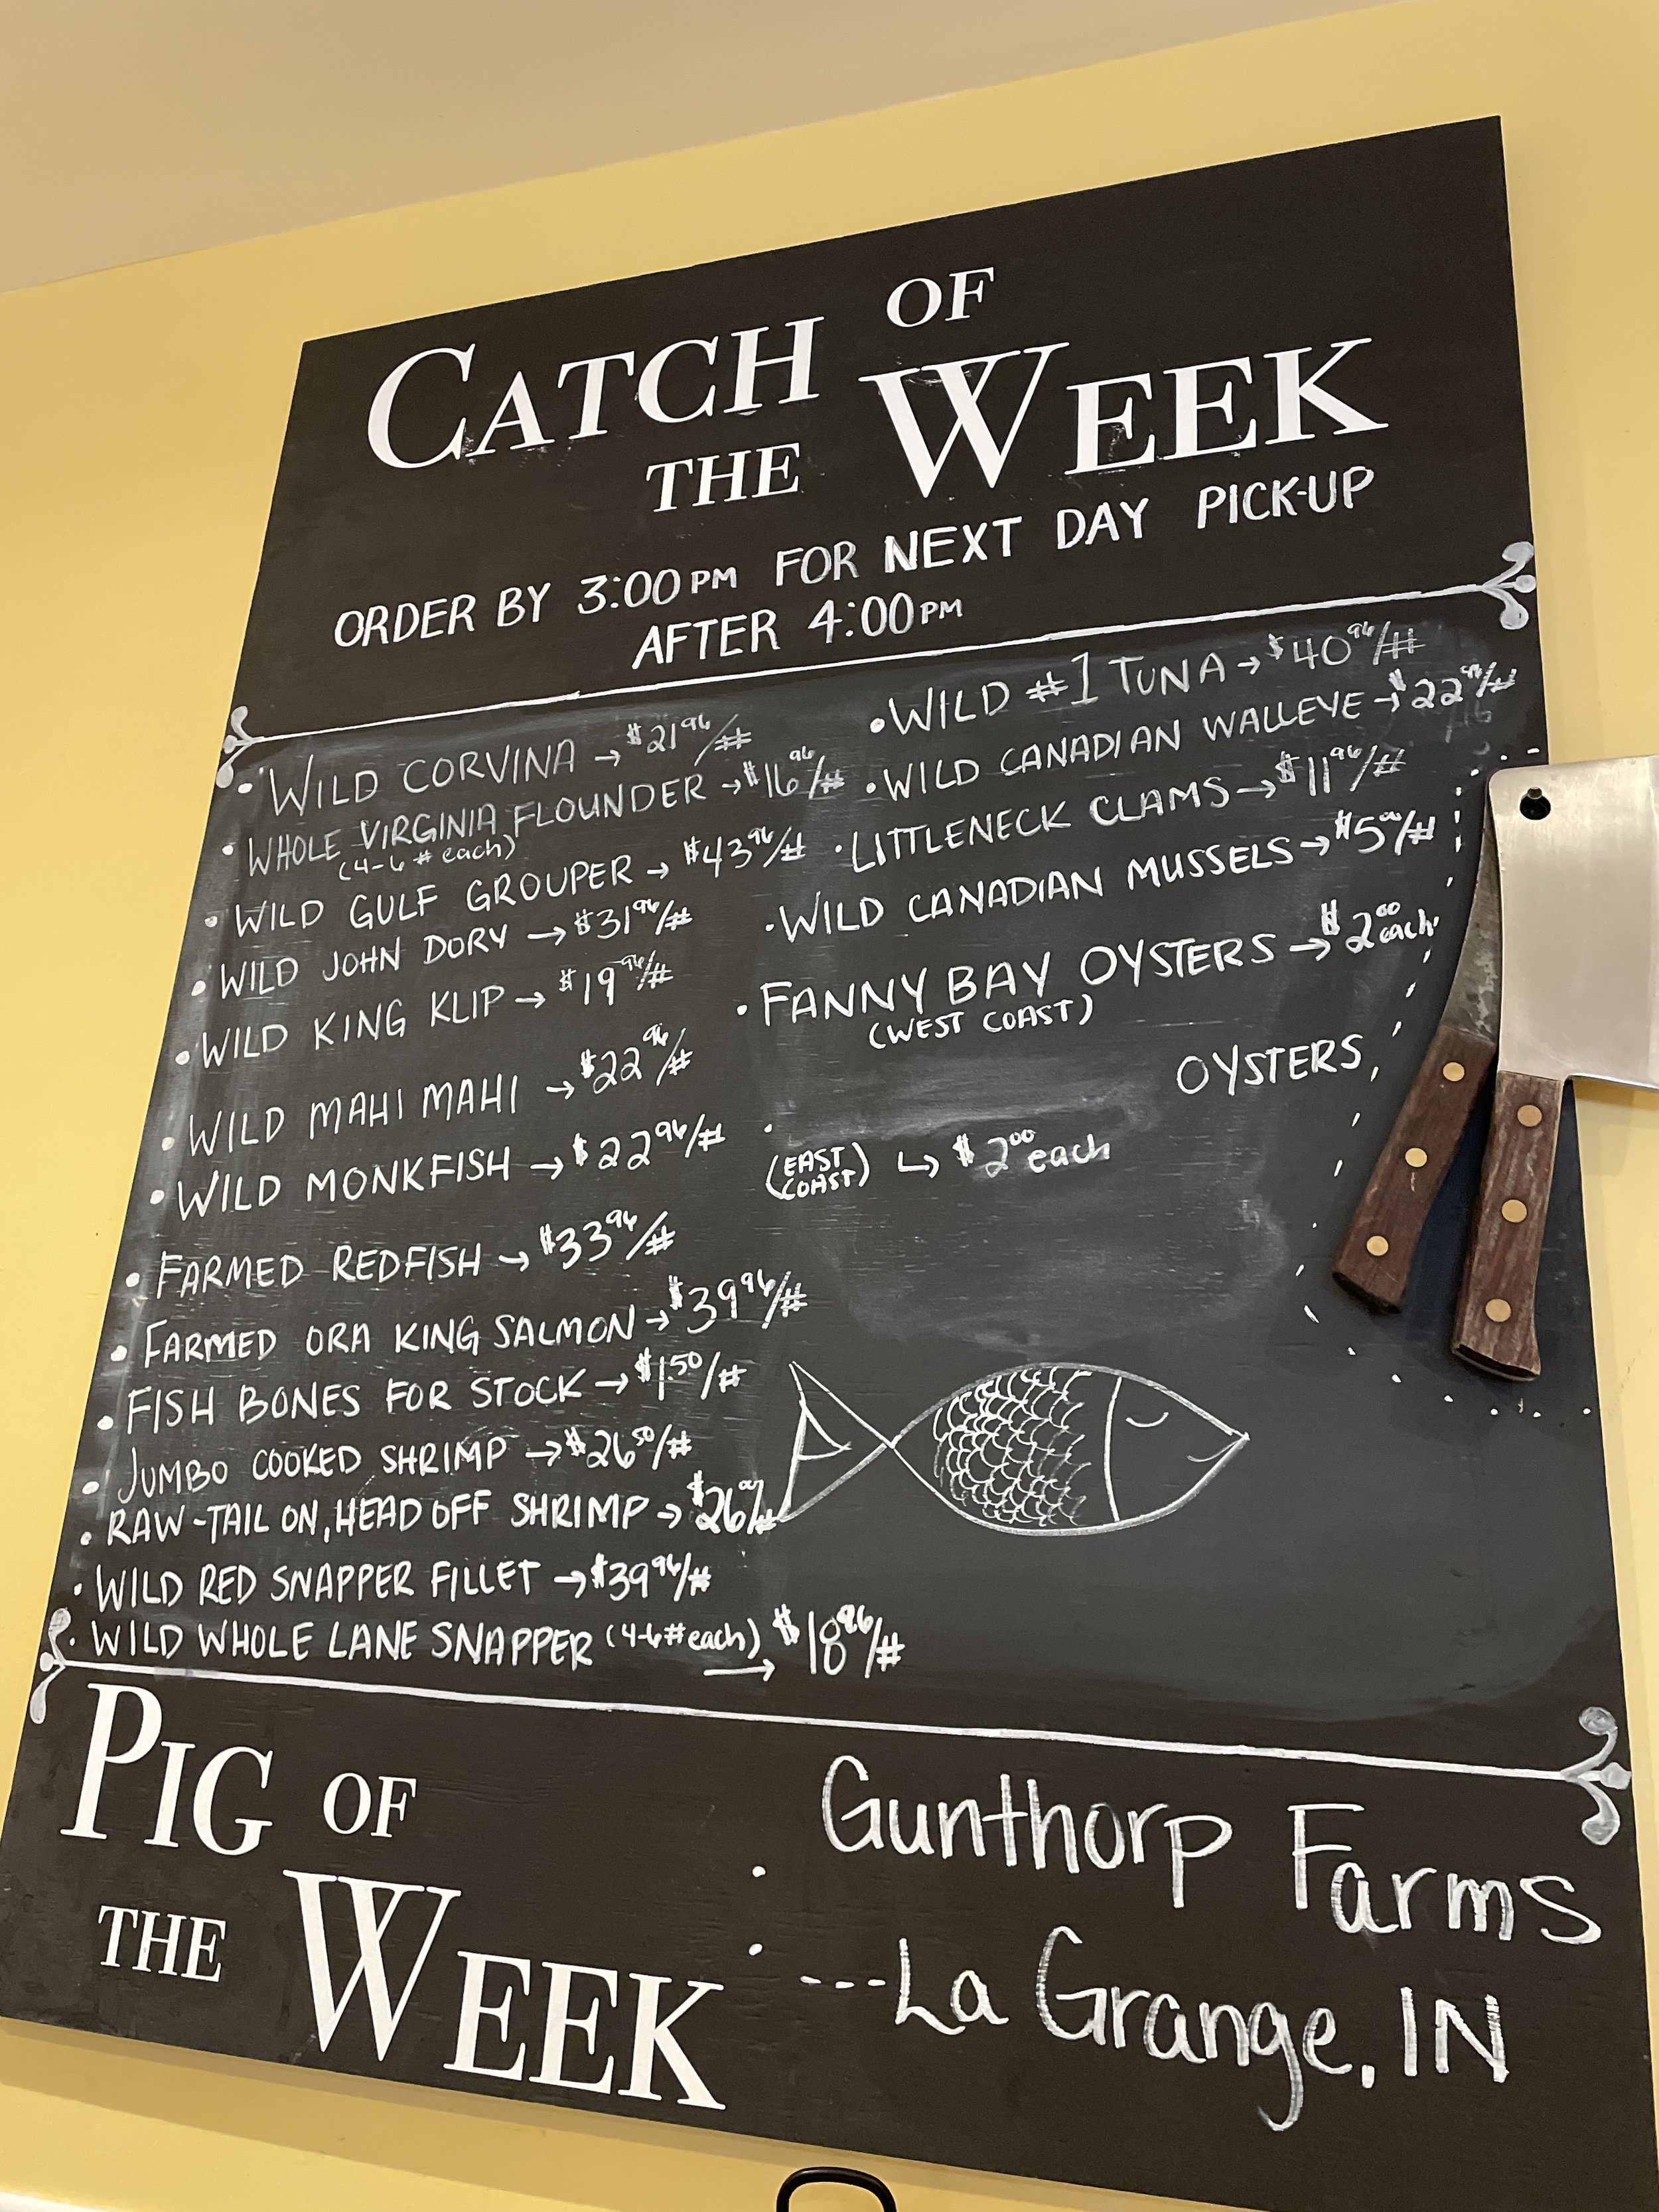 CATCH OF
THE WEEK
ORDER BY 3:00PM FOR NEXT DAY PICK-UP
AFTER 4:00PM
• WILD CORVINA → $21 96/#
• WHOLE VIRGINIA FLOUNDER → $16 96/#
(4-6# each)
• WILD GULF GROUPER → $43 96/#
• WILD JOHN DORY → $31 96/#
• WILD KING KLIP → $19 96/#
• WILD MAHI MAHI → $22 96/#
• WILD MONKFISH → $22 96/#
• FARMED REDFISH → $33 96/#
• FARMED ORA KING SALMON → $39 96/#
• FISH BONES FOR STOCK → $1 50/#
• JUMBO COOKED SHRIMP → $26 50/#
• RAW-TAIL ON, HEAD OFF SHRIMP → $26 00/#
• WILD RED SNAPPER FILLET → $39 96/#
• WILD WHOLE LANE SNAPPER (4-6# each) → $18 96/#
• WILD #1 TUNA → $40 96/#
• WILD CANADIAN WALLEYE → $22 96/#
• LITTLENECK CLAMS → $11 96/#
• WILD CANADIAN MUSSELS → $5 00/#
• FANNY BAY OYSTERS → $2 00 each
(WEST COAST)
• OYSTERS
(EAST COAST) ↳ $2 00 each
PIG OF
THE WEEK :
Gunthorp Farms
---La Grange, IN